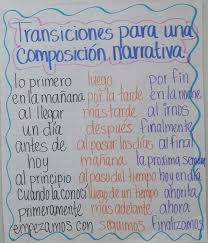 Transiciones para una
composición narrativa
lo primero luego por fin
en la mañana por la tarde en la noche
al llegar mas tarde al irnos
un día después finalmente
antes de al pasar los días al final
hoy mañana la proxima semana
al principio al paso del tiempo hoy en día
cuando la conocí luego de un tiempo ahorita
primeramente más adelante ahora
empezamos con seguimos finalizamos